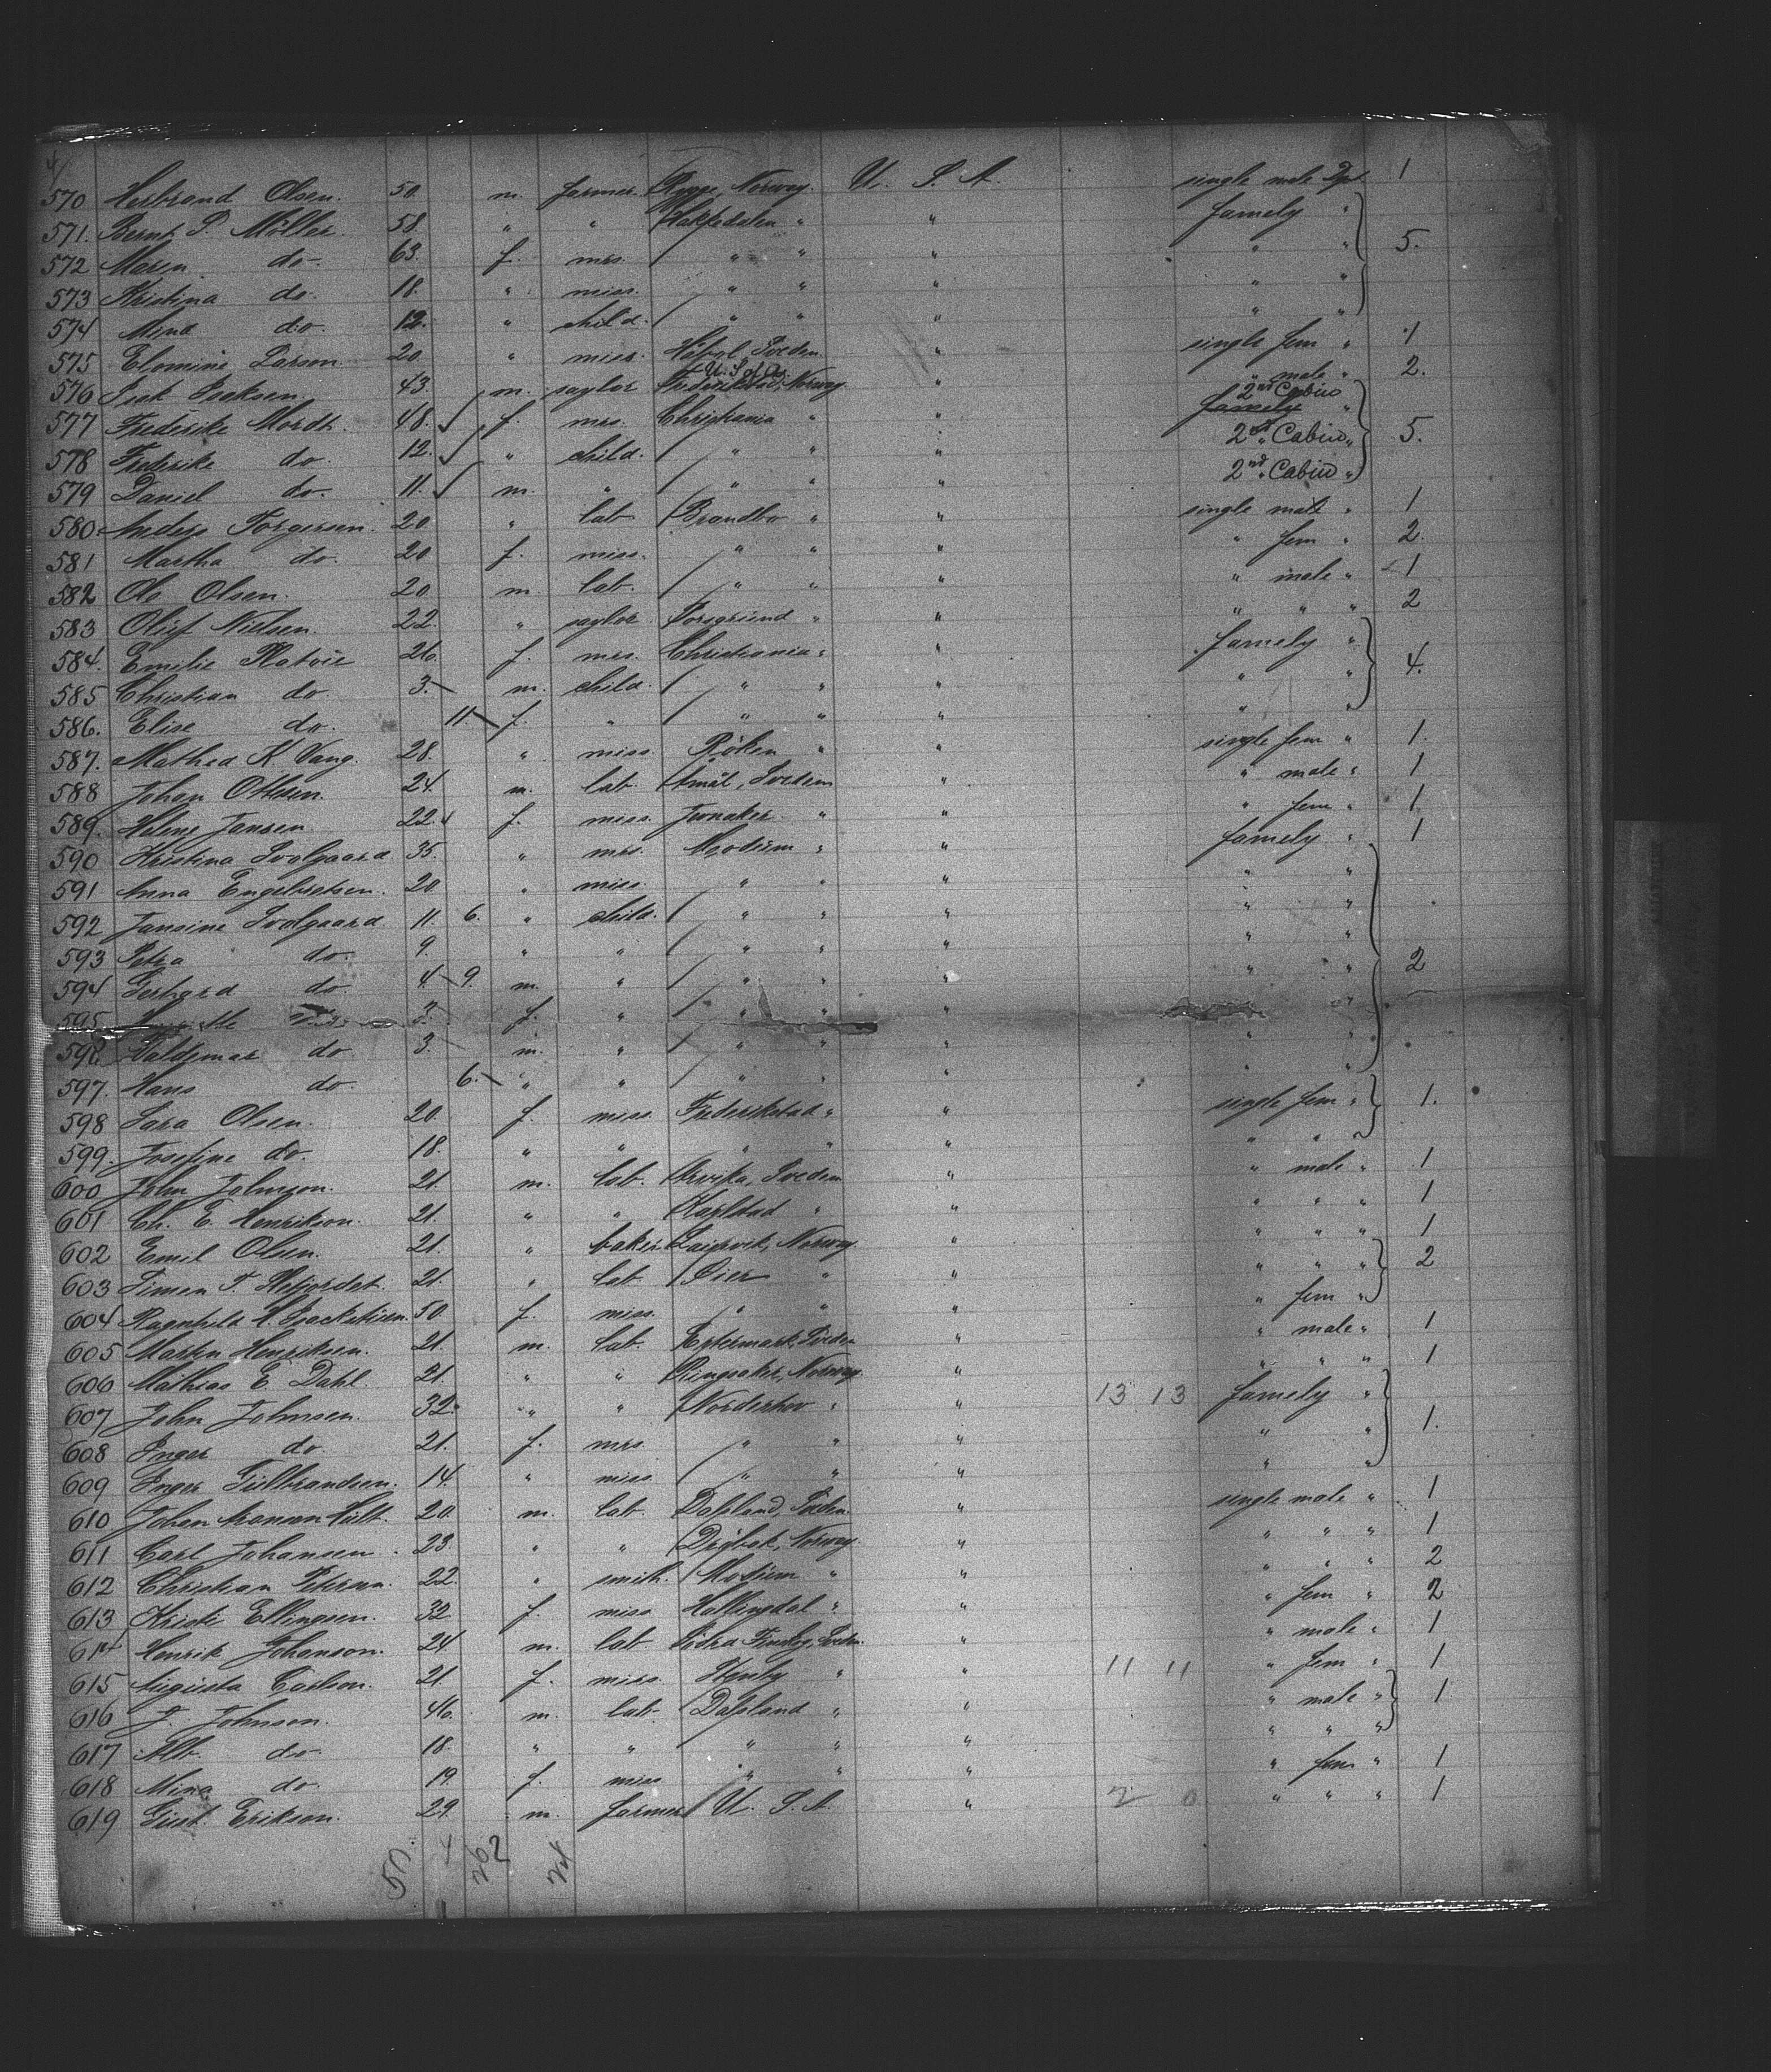 570 Herbrand Olsen. 50. m. farmer. Rygge, Norway. U. S. A single male 1
571. Bernt P. Möller. 58. " " Hakkedalen " " famely " 5.
572 Maren do. 63. f. mrs. " " " " "
573 Kristina do. 18. " miss. " " " " "
574 Mina do. 12. " child. " " " " "
575 Elomine Larson. 20. " miss. Sveden. " single fem " 1
576 Isak Isaksen 43. m. saylor U. S. of A. Frederikstad, Norway. " " male " 2.
577 Frederike Mordt. 48. f. mrs. Christiania " " famely 2nd Cabin " 5.
578 Frederike do. 12. " child. " " " 2nd Cabin "
579 Daniel do. 11. m. " " " " 2nd Cabin "
580 Anders Torgersen. 20 " lab. Brandbo " " single male " 1
581 Martha do. 20 f. miss. " " " " fem " 2.
582 Ole Olsen. 20. m. lab. " " " " male " 1
583 Oluf Nielsen. 22. " saylor Porsgrund " " " " " 2
584. Emilie 26. f. mrs. Christiania " " famely " 4.
585 Christian do. 3. m. child. " " " " "
586. Elise do. 11. f. " " " " "
587. Mathea K. Vang. 28. " miss Röken " " single fem " 1.
588 Johan Ottesen. 24. m. lab. Åmål, Sveden " " male " 1
589. Helene Jansen 22. f. miss. Jevnaker " " " fem " 1.
590 Kristina Svolgaard 35. " mrs. Modum " " famely " 1
591 Anna Engebretsen. 20. " miss. " " " " "
592 Jansine Svolgaard 11. 6. " child. " " " " "
593 Petra do. 9. " " " " " " "
594 Gerhard do. 4. 9. m. " " " " " " 2
595 3. f. " " " " "
596 Valdemar do. 3. m. " " " " " "
597. Hans do. 6. " " " " " " "
598 Sara Olsen. 20. f. miss. Frederikstad " " single fem " 1.
599. Josefine do. 18. " " " " " " " "
600 John Johnson. 21. m. lab. Arvika, Sveden " " male " 1
601 Ch. E. Henrikson. 21. " " Karlstad " " " " " 1
602 Emil Olsen. 21. " baker Norway. " " " " 1
603 Simen T. 21. " lab. Oier " " " " " 2
604 Ragnhild H. 50. f. miss. " " " " fem "
605 Martin Henriksen. 21. m. lab. Sveden " " male " 1
606 Mathias E. Dahl. 21 " " Ringsaker, Norway. " " " " 1
607 John Johnsen. 32. " " Norderhov " " 13 13 famely " 1.
608 Inger do. 21. f. mrs. " " " " "
609 Inger Gulbrandsen. 14. " miss " " " " "
610 Johan 20. m. lab. Dalsland, Sveden. " single male " 1
611 Carl Johansen. 23. " " Dröbak, Norway. " " " " 1
612 Christian Petersen. 22. " smith. Modum " " " " " 2
613 Kristi Ellingsen. 32 f. miss Hallingdal " " " fem " 2
614 Henrik Johanson. 24. m. lab. Södra Sveden. " " male " 1
615 Augusta Carlson. 21 f. miss. " " 11 11 " fem " 1
616 J. Johnson. 46. m. lab. Dalsland " " " male " 1
617 Alb. do. 18. " " " " " " " "
618 Mina do. 19. f. miss " " " " fem " 1
619 Gust. Erikson. 29. m. farmer U. S. A. " 2 0 " " " 1
50. 4 24